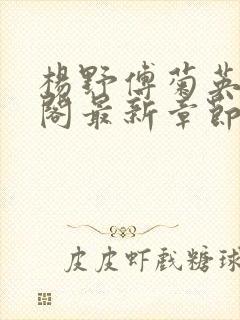 杨野傅菊英
阁最新章节
皮皮虾戏糖球